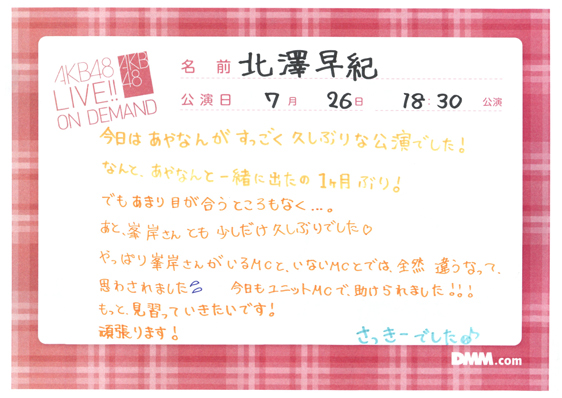 AKB48
LIVE!!
ON DEMAND
AKB
48
名 前 北澤早紀
公演日 7月 26日 18:30 公演
今日はあやなんがすっごく久しぶりな公演でした!
なんと、あやなんと一緒に出たの1ヶ月ぶり!
でもあまり目が合うところもなく…。
あと、峯岸さんとも少しだけ久しぶりでした♡
やっぱり峯岸さんがいるMCと、いないMCとでは、全然 違うなって、
思わされました 今日もユニットMCで、助けられました!!!
もっと、見習っていきたいです!
頑張ります!
さっきーでした♪
DMM.com